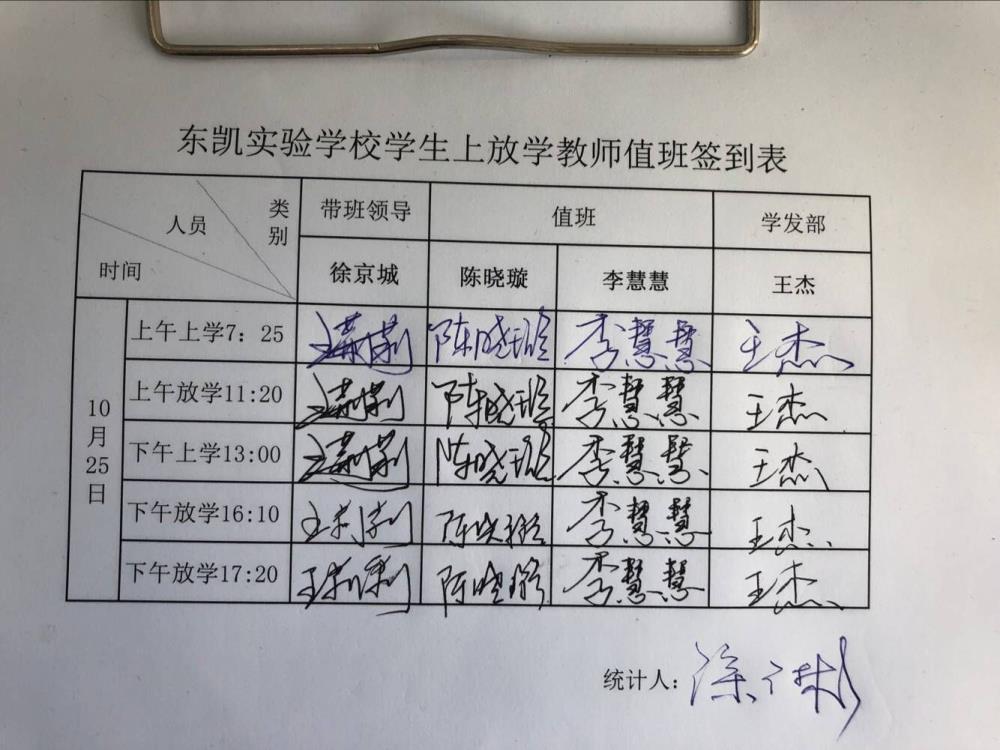 东凯实验学校学生上放学教师值班签到表
类别 人员 时间 带班领导 值班 学发部
徐京城 陈晓璇 李慧慧 王杰
10月25日
上午上学7：25 陈晓璇 李慧慧 王杰
上午放学11:20 陈晓璇 李慧慧 王杰
下午上学13:00 陈晓璇 李慧慧 王杰
下午放学16:10 陈晓璇 李慧慧 王杰
下午放学17:20 陈晓璇 李慧慧 王杰
统计人：